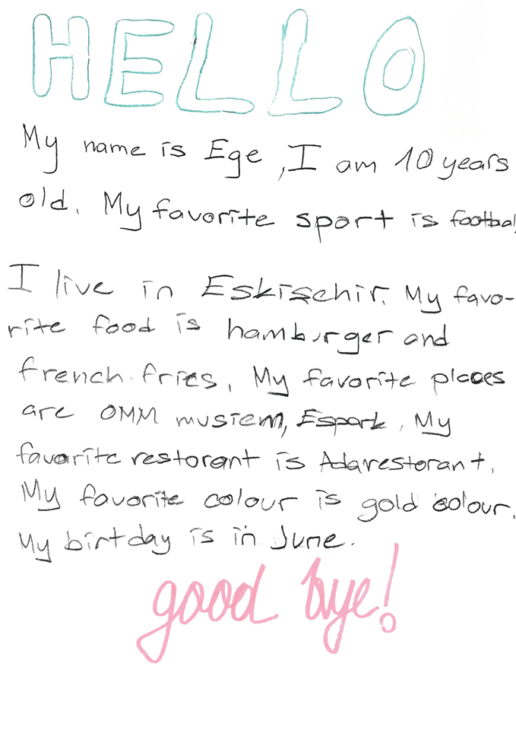 HELLO
My name is Ege, I am 10 years
old. My favorite sport is footbal
I live in Eskischir. My favo-
rite food is hamburger and
french fries. My favorite places
are OMM musiem, Espark. My
favorite restorant is Adarestorant.
My favorite colour is gold colour.
My birtday is in June.
good bye!